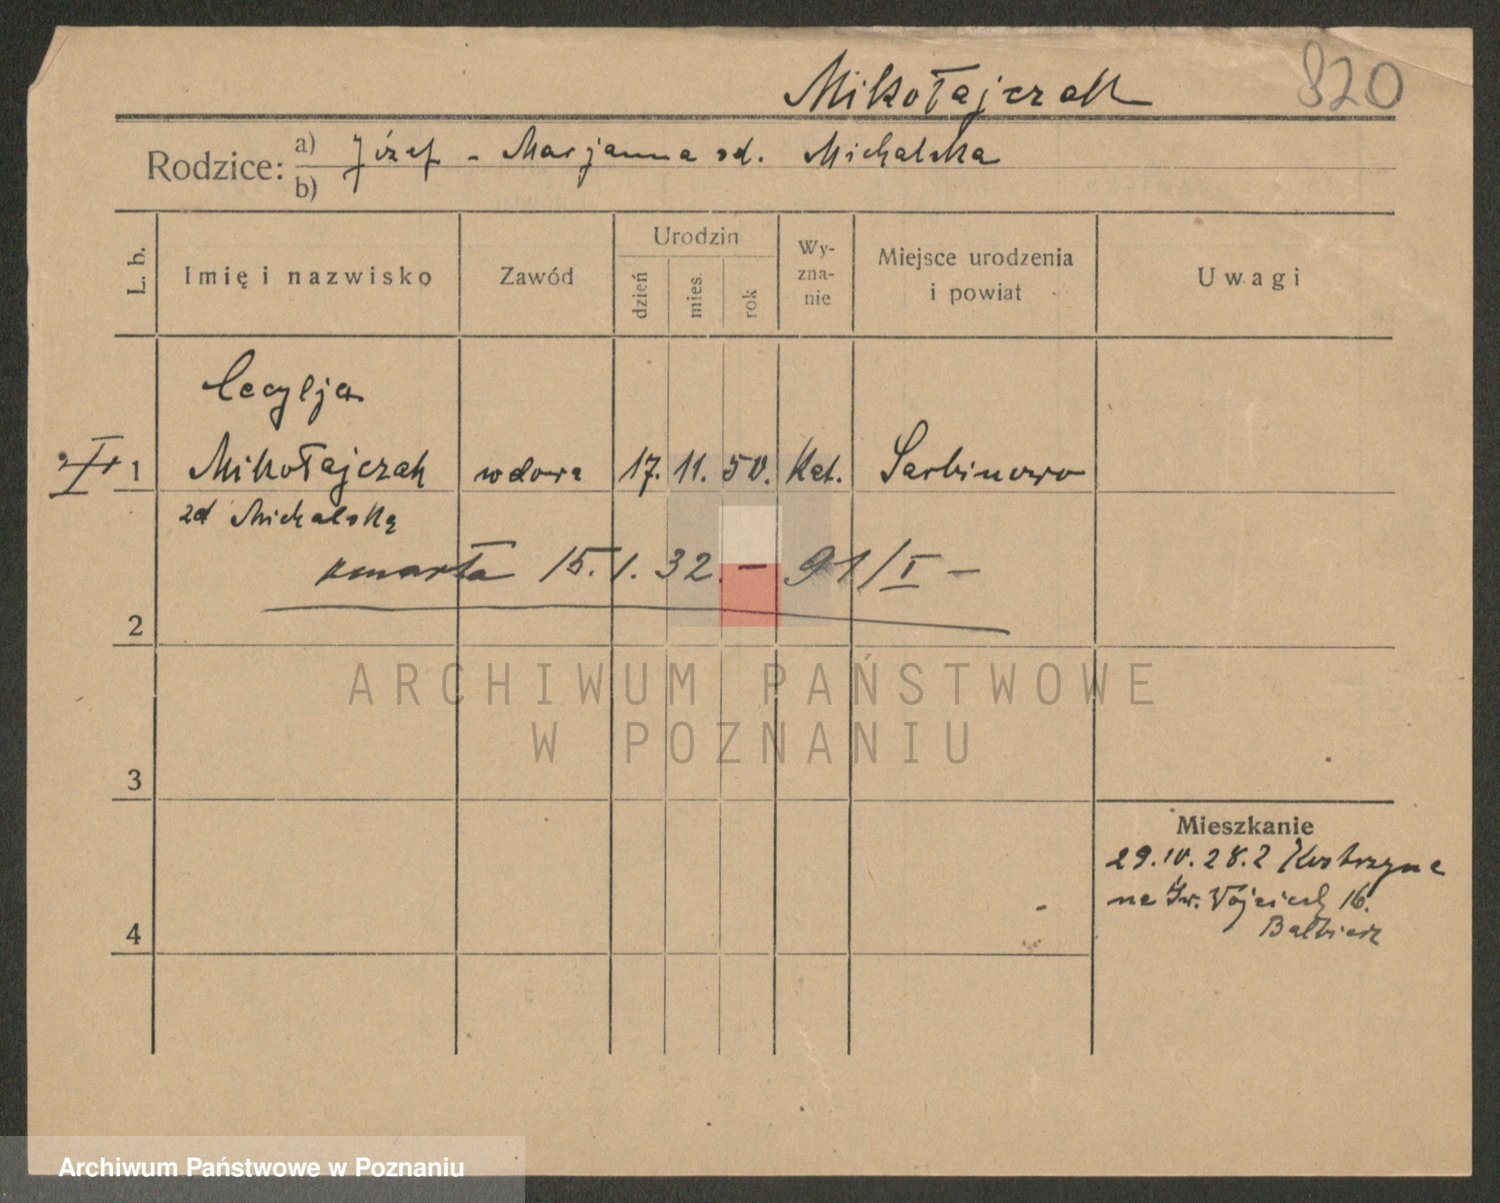 Mikołajczak 820
Rodzice: a) Józef - Marjanna zd. Michalska
b)
L. b. Imię i nazwisko Zawód Urodzin dzień mies. rok Wyzna-nie Miejsce urodzenia i powiat Uwagi
Cecylja
1 Mikołajczak wdowa 17. 11. 50. kat. Sarbinowo
zd Michalską
zmarła 15.1.32. - 91/I -
2
ARCHIWUM PAŃSTWOWE
W POZNANIU
3
Mieszkanie
29.IV.28. z Kostrzyna
na Św. Wojciech 16.
4
Archiwum Państwowe w Poznaniu